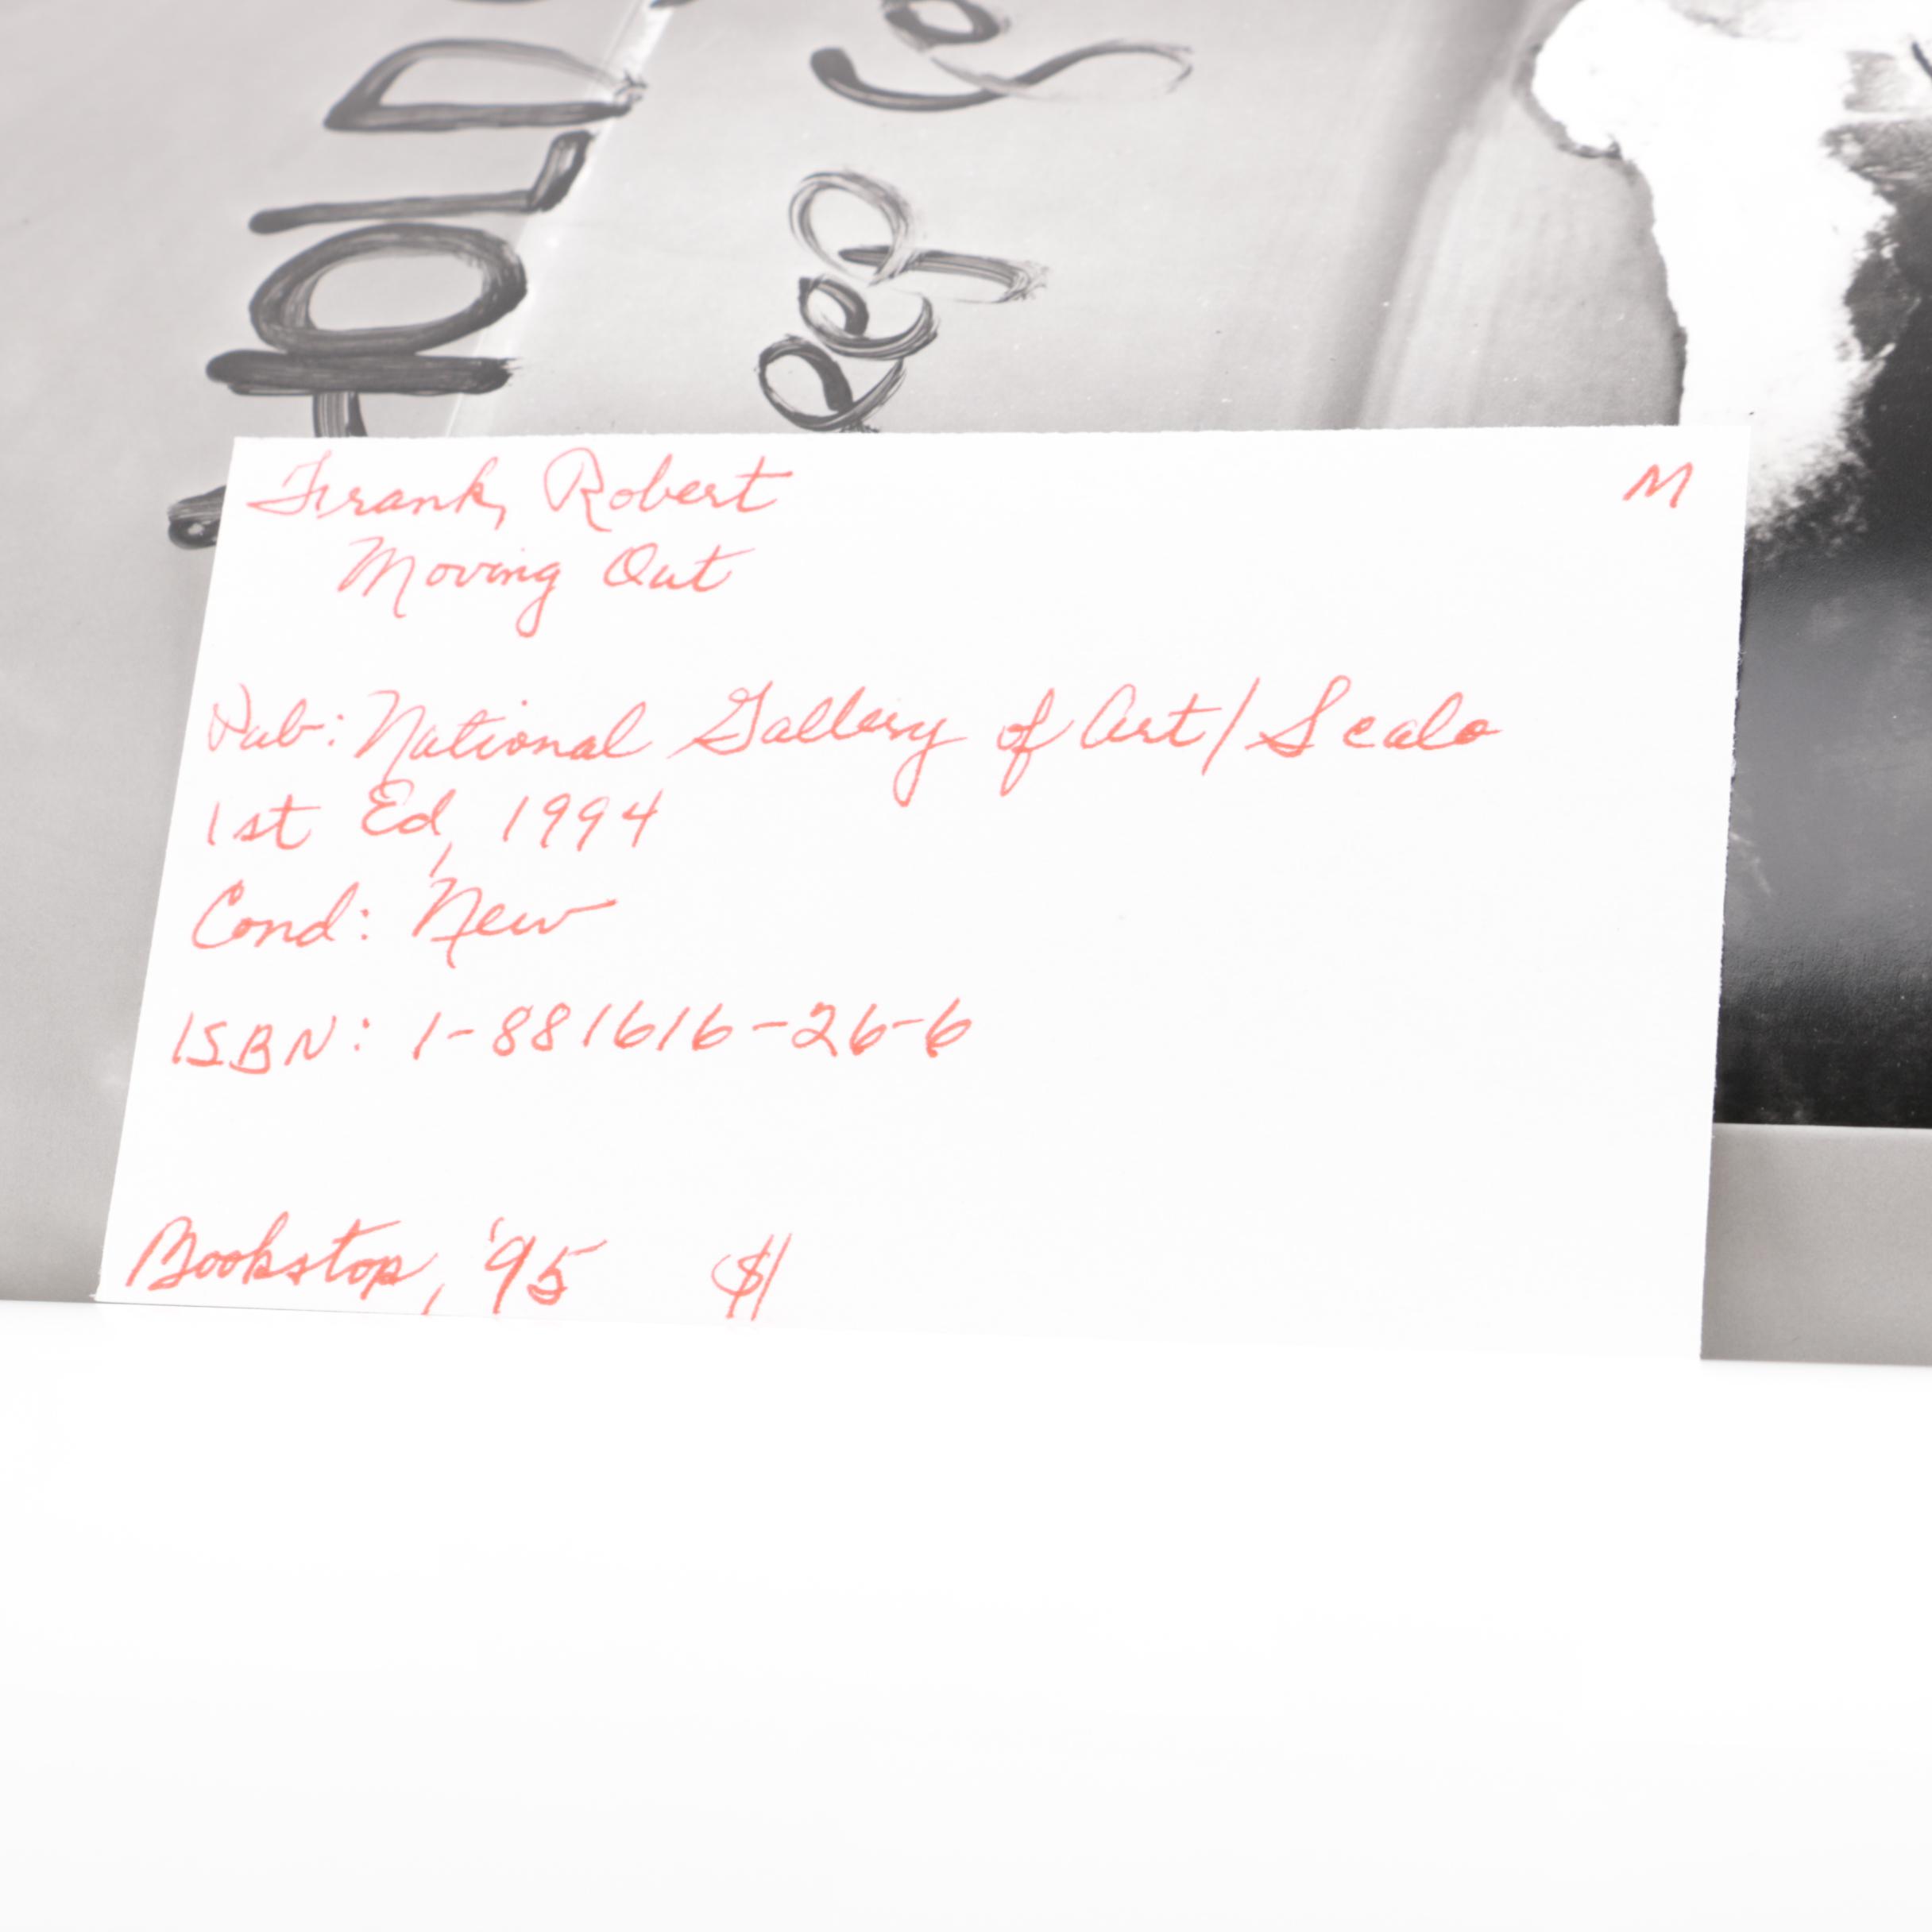 HOLD
Frank, Robert M
Moving Out
Pub: National Gallery of Art/Scalo
1st Ed, 1994
Cond: New
ISBN: 1-881616-26-6
Bookstop, '95 $